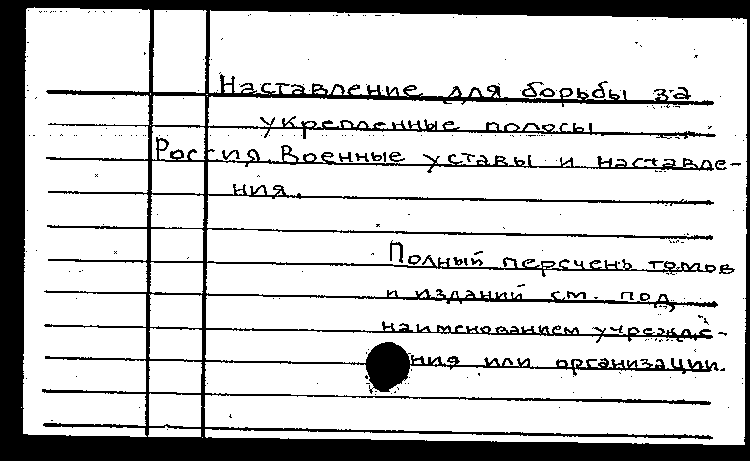 Наставление для борьбы за
укрепленные полосы.
Россия. Военные уставы и наставле-
ния.
Полный перечень томов
и изданий см. под
наименованием учрежде-
ния или организации.